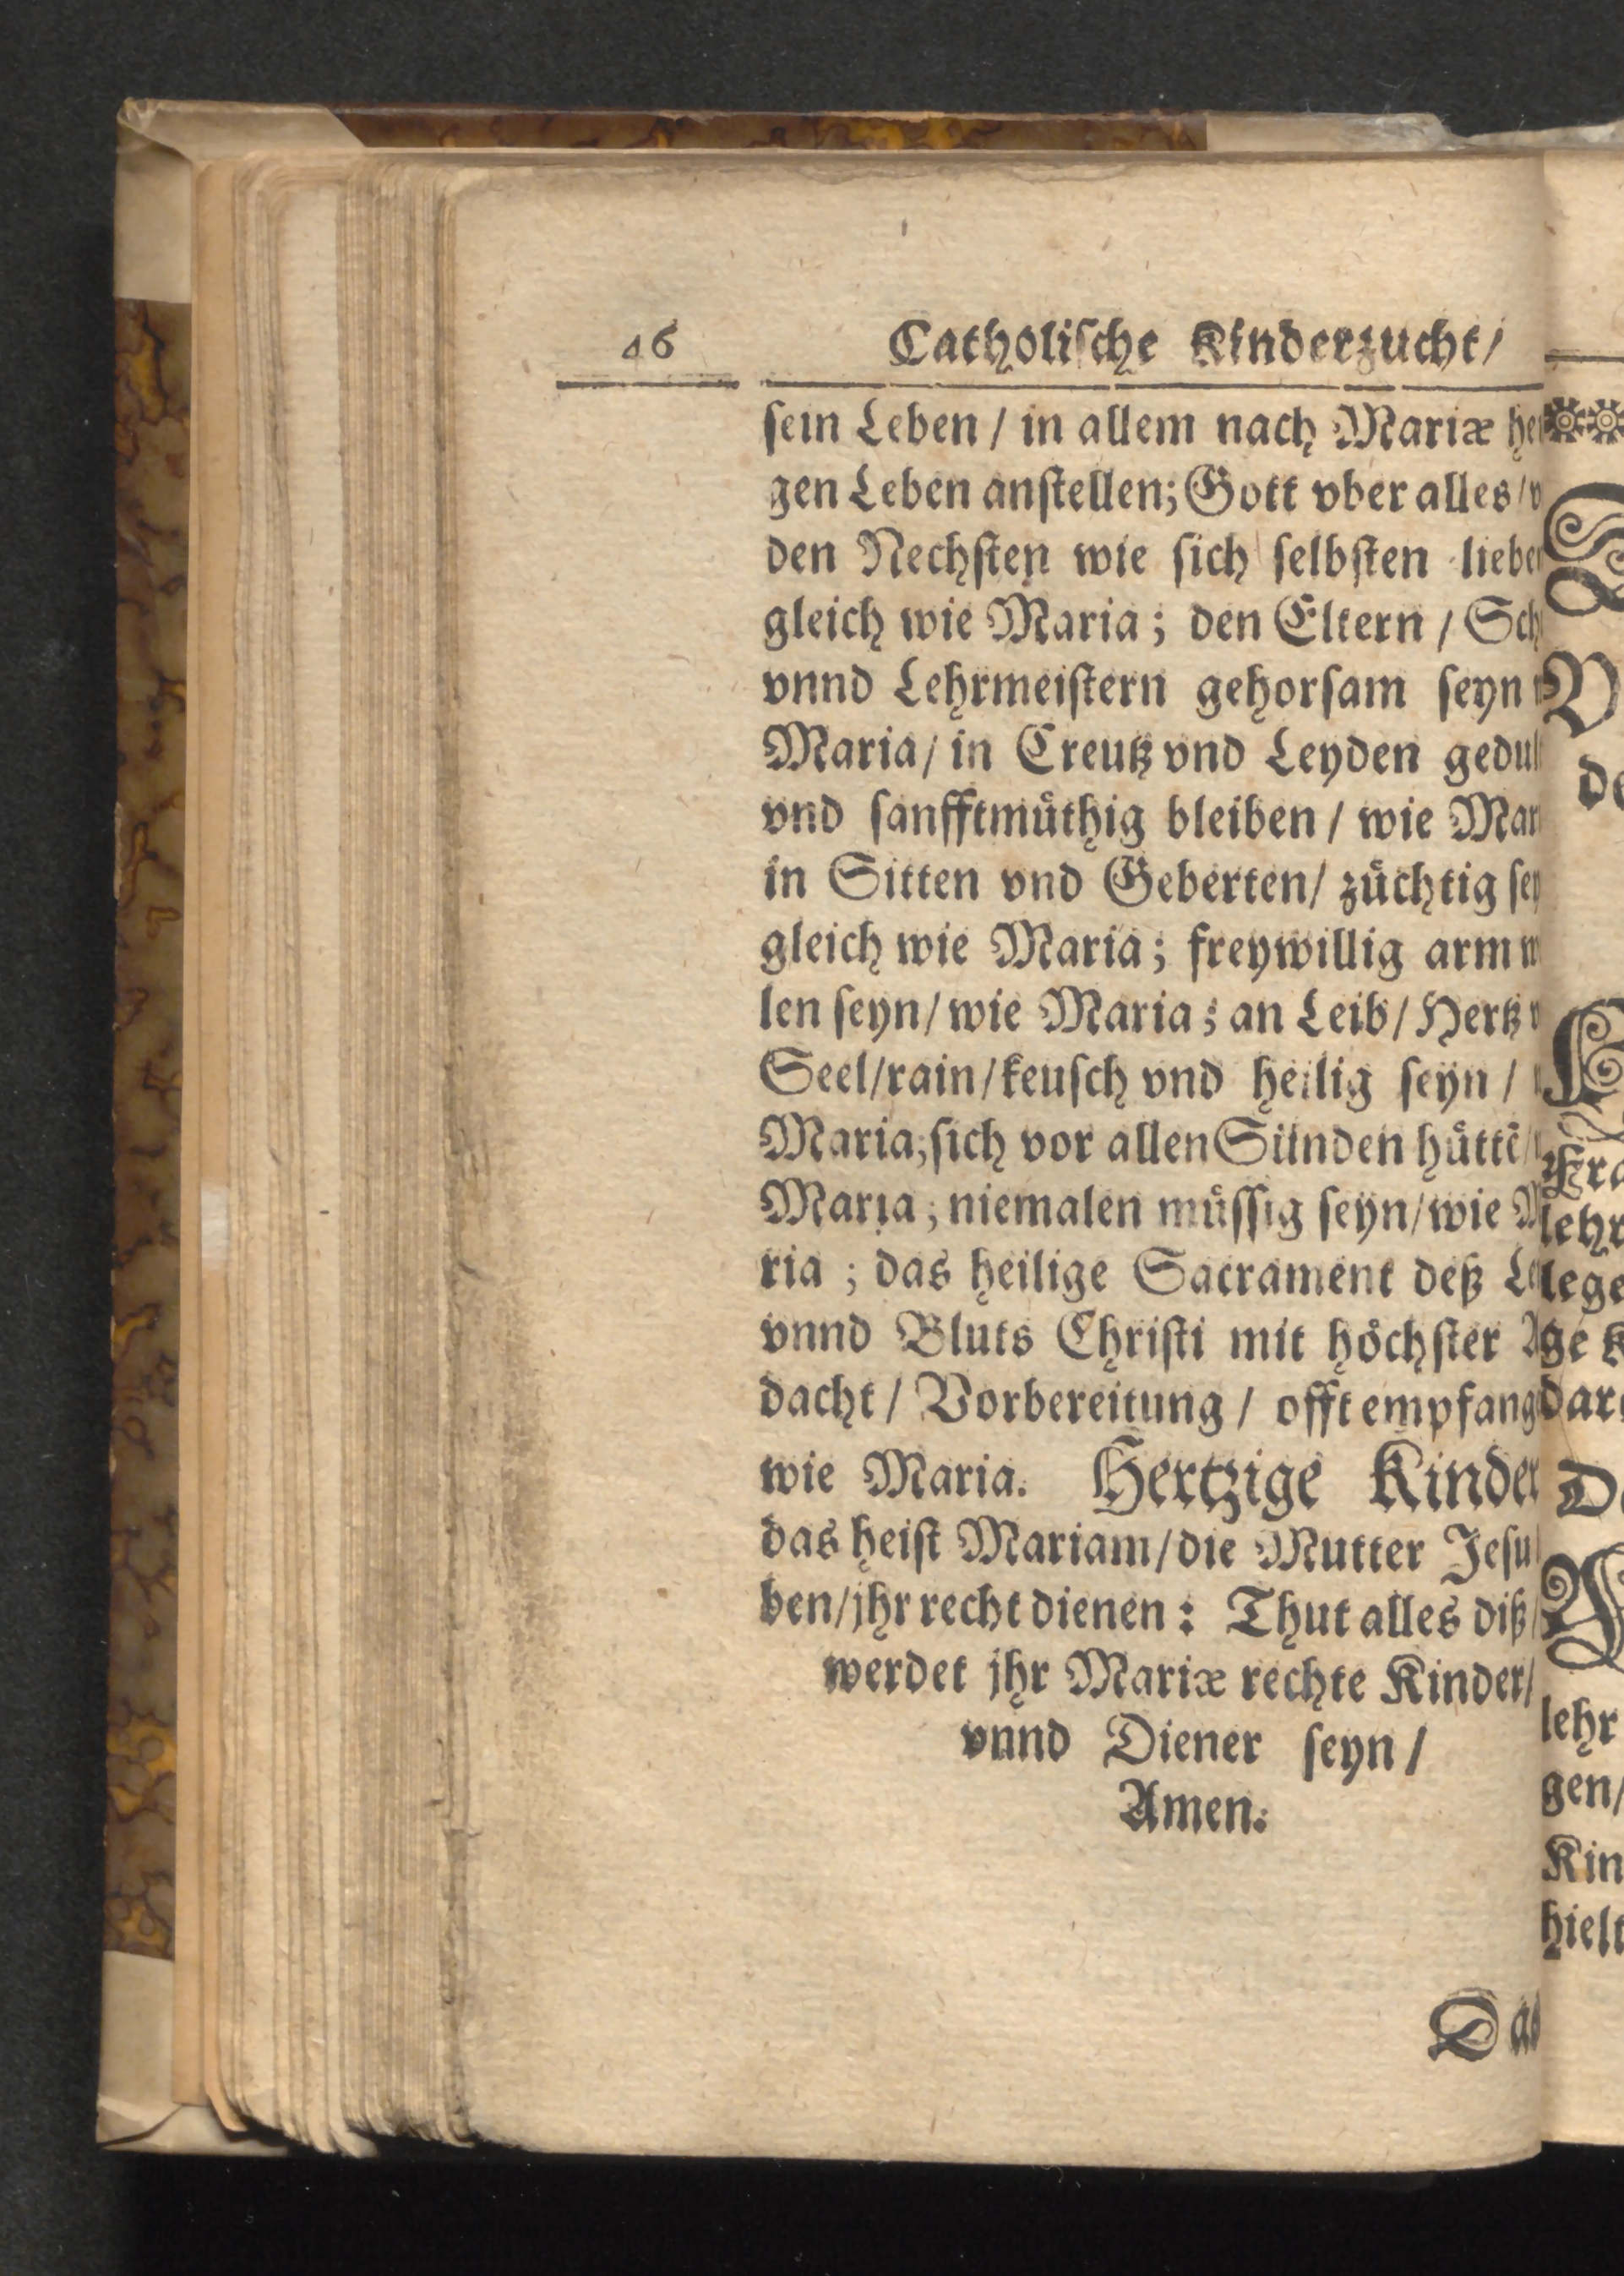 46 Catholische Kinderzucht/
sein Leben / in allem nach Mariæ
gen Leben anstellen; Gott vber alles /
den Nechsten wie sich selbsten
gleich wie Maria; den Eltern /
vnnd Lehrmeistern gehorsam seyn
Maria / in Creutz vnd Leyden
vnd sanfftmüthig bleiben / wie
in Sitten vnd Geberten / züchtig
gleich wie Maria; freywillig arm
len seyn / wie Maria; an Leib / Hertz
Seel / rain / keusch vnd heilig seyn /
Maria; sich vor allen Sünden hüttē /
Maria; niemalen müssig seyn / wie
ria; das heilige Sacrament deß
vnnd Bluts Christi mit höchster
dacht / Vorbereitung / offt
wie Maria. Hertzige Kinder
das heist Mariam / die Mutter Jesu
ben / jhr recht dienen: Thut alles diß /
werdet jhr Mariæ rechte Kinder /
vnnd Diener seyn /
Amen.
Das